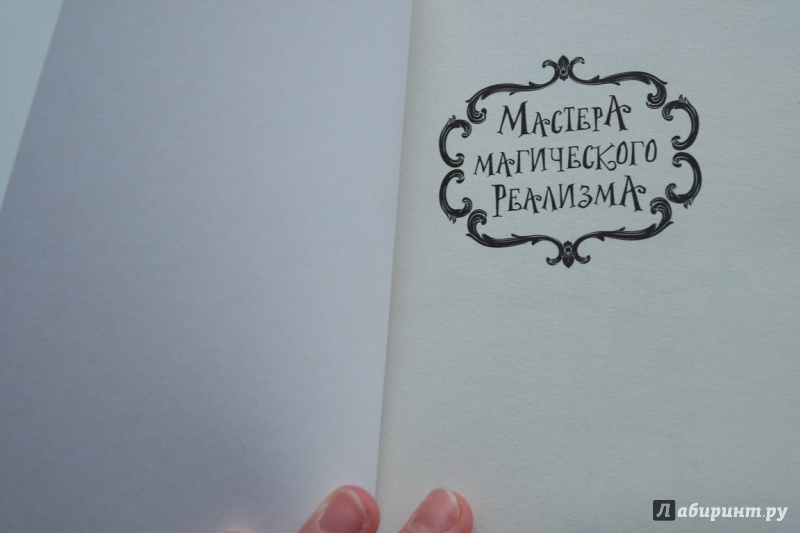 Мастера
магического
реализма
Лабиринт.ру